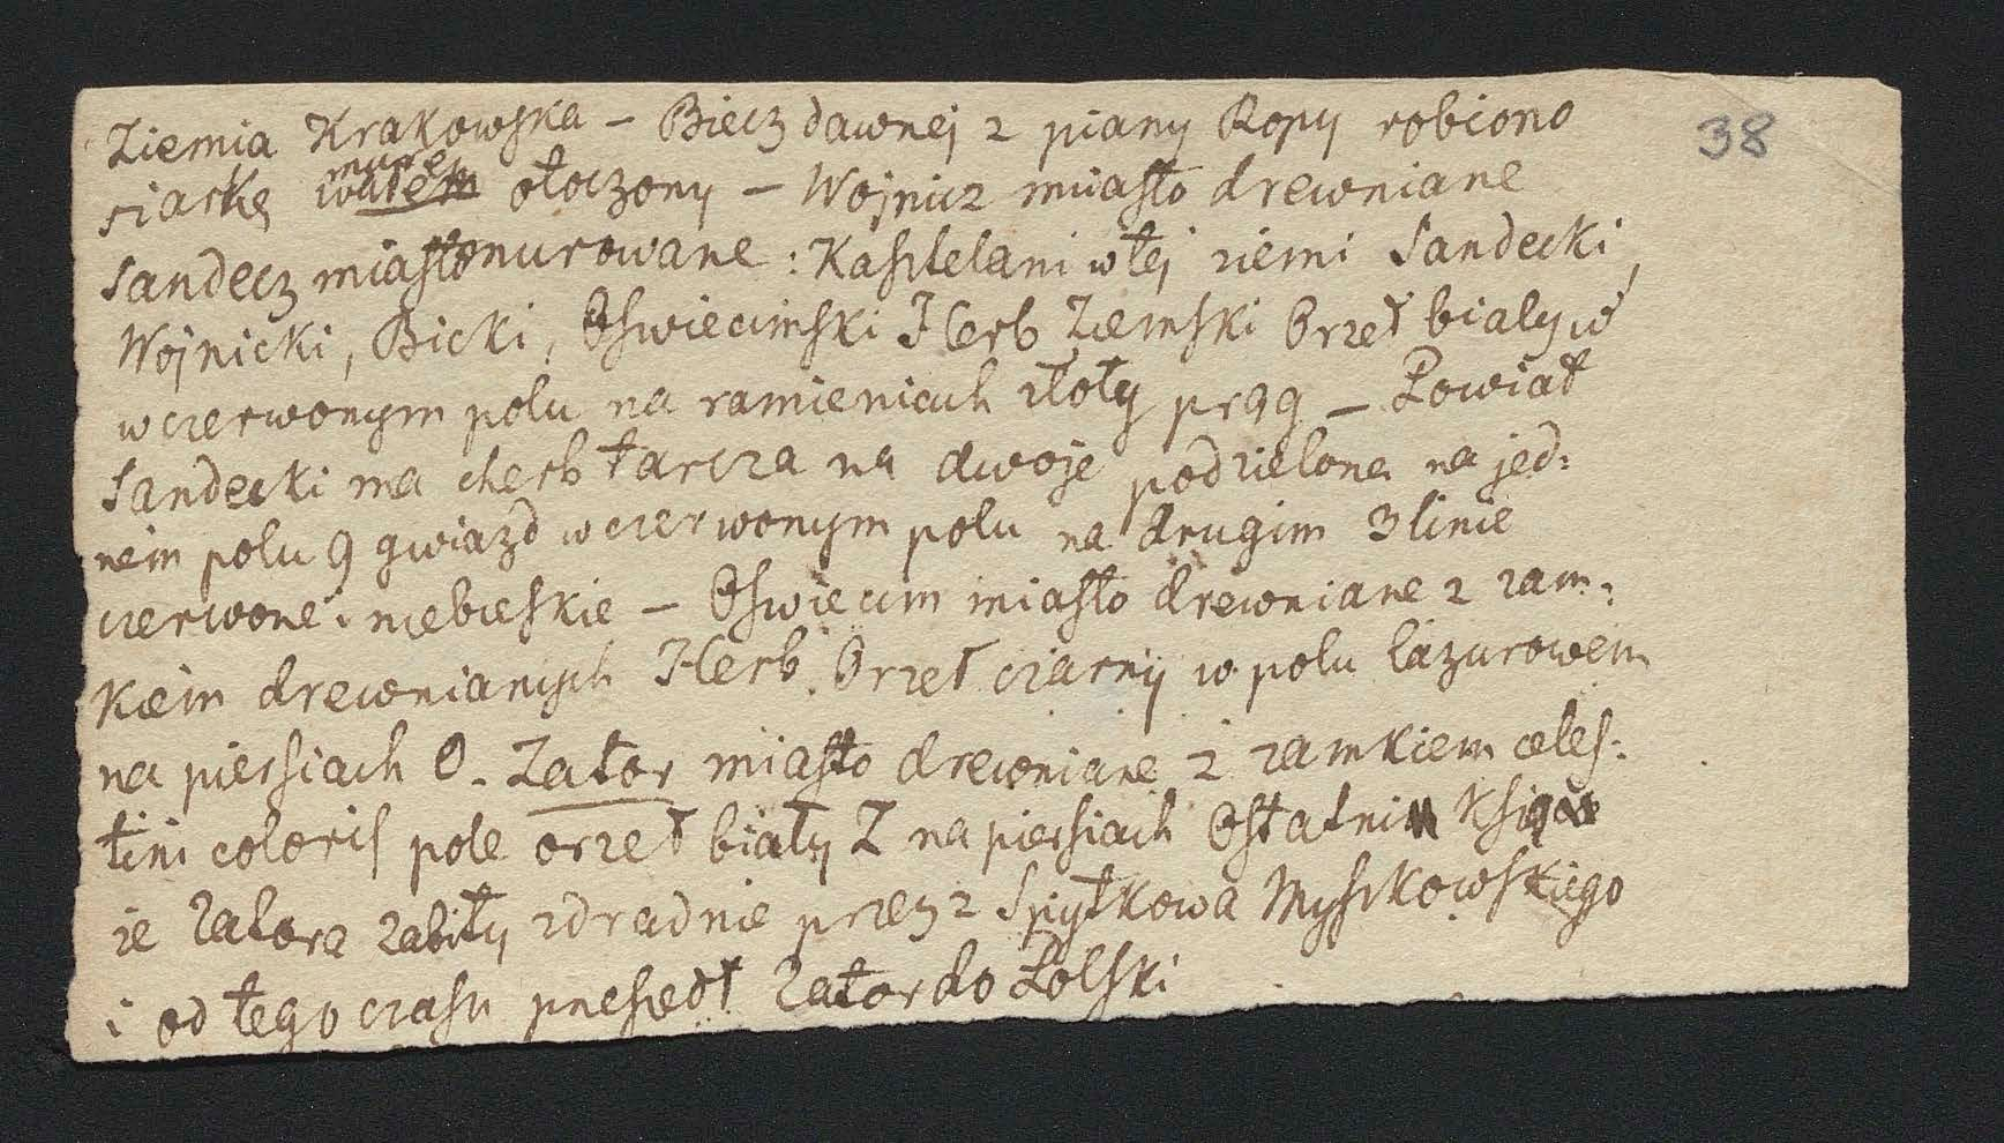 Ziemia Krakowska – Biecz dawnej z piany Ropy robiono
38
siarkę murem otoczony – Wojnicz miasto drewniane
Sandecz miasto murowane : Kasztelani w tej ziemi Sandecki,
Wojnicki, Bicki, Oswiecimski Herb Ziemski Orzeł bialy w
w czerwonym polu na ramieniach złoty prąg – Powiat
Sandecki ma cherb tarcza na dwoje podzielona na jed:
nem polu 9 gwiazd w czerwonym polu na drugim 3 linie
czerwone i niebieskie – Oswiecim miasto drewniane z zam:
kiem drewnianych Herb Orzeł czarny w polu lazurowem
na piersiach O. Zator miasto drewniane z zamkiem celes:
tini coloris pole orzeł biały Z na piersiach Ostatni Książe
ze Zatora zabity zdradnie przez z Spytkowa Myszkowskiego
i od tego czasu przeszedł Zator do Polski